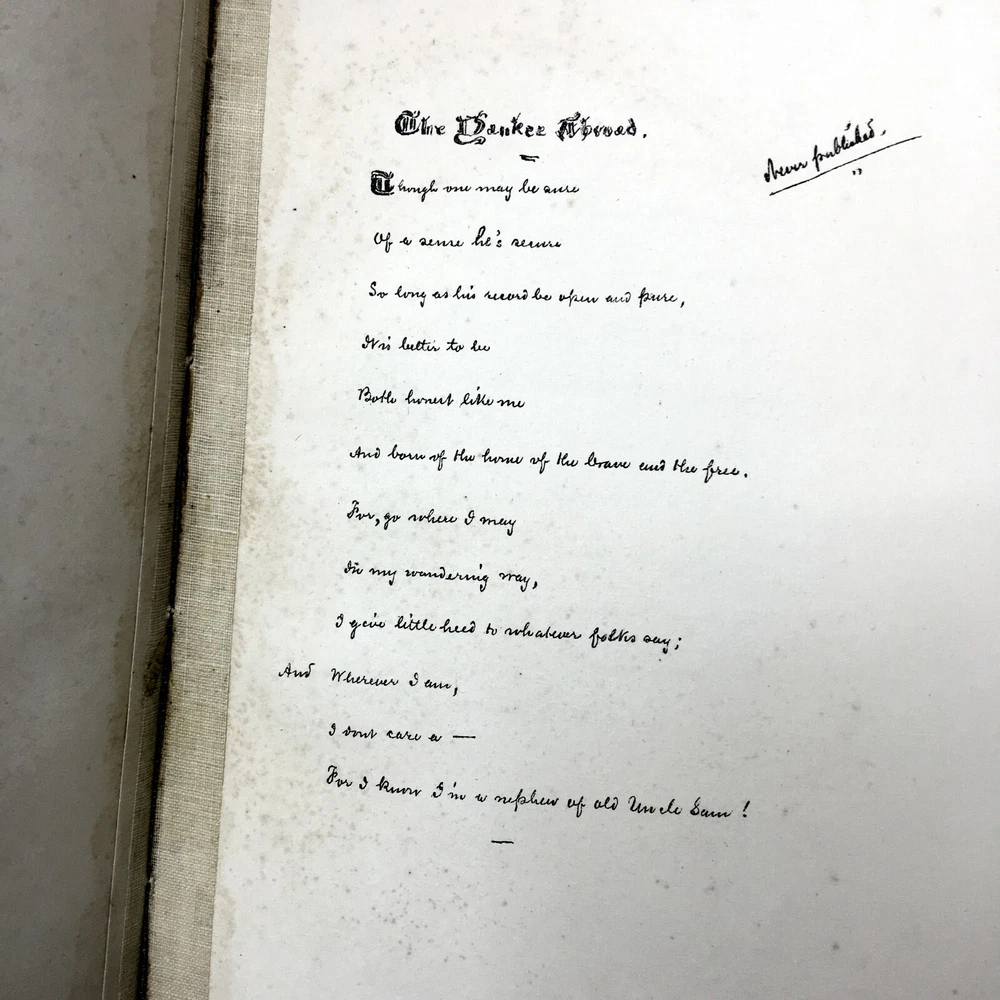 The Yankee Abroad.
Never published.
Though one may be sure
Of a sense he's secure
So long as his record be open and pure,
It is better to be
Both honest like me
And born of the home of the brave and the free.
For, go where I may
In my wandering way,
I give little heed to whatever folks say;
And Wherever I am,
I dont care a —
For I know I'm a nephew of old Uncle Sam!